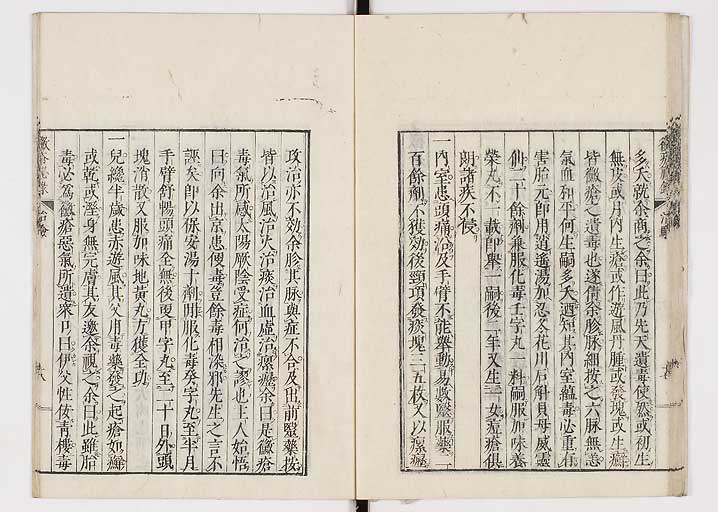 多夭就余商之余曰此乃先天遺毒使然或初生
無皮或月內生瘡或作遊風丹腫或發塊或生癬
皆黴瘡之遺毒也遂倩余胗脉細按之六脉無恙
氣血和平何生嗣多夭迺知其內室蘊毒必重有
害胎元卽用逍遙湯加忍冬花川石斛貝母威靈
仙二十餘劑兼服化毒壬字丸一料嗣服加味養
榮丸不二載卽舉一嗣後二年又生一女痘瘡俱
朗諸疾不侵
一內室患頭痛治及手臂不能舉動易數醫服藥二
百餘劑不獲効後頸項發痰塊三五枚又以瘰癧
攻治亦不効余胗其脉與症不合及出前醫藥按
皆以治風治火治痰治血虛治瘰癧余曰是黴瘡
毒氣所感太陽厥陰受症何治之謬也主人始悟
曰向余出京患便毒豈餘毒相染邪先生之言不
誣矣卽以保安湯十劑朋服化毒癸字丸至半月
手臂舒暢頭痛全無後更甲字丸至二十日外頭
塊消散又服加味地黃丸方獲全功
一兒纔半歲患赤遊風其父用毒藥發之起瘡如癬
或乾或溼身無完膚其友邀余視之余曰此雖胎
毒必爲黴瘡惡氣所遺衆曰伊父性佞青樓毒